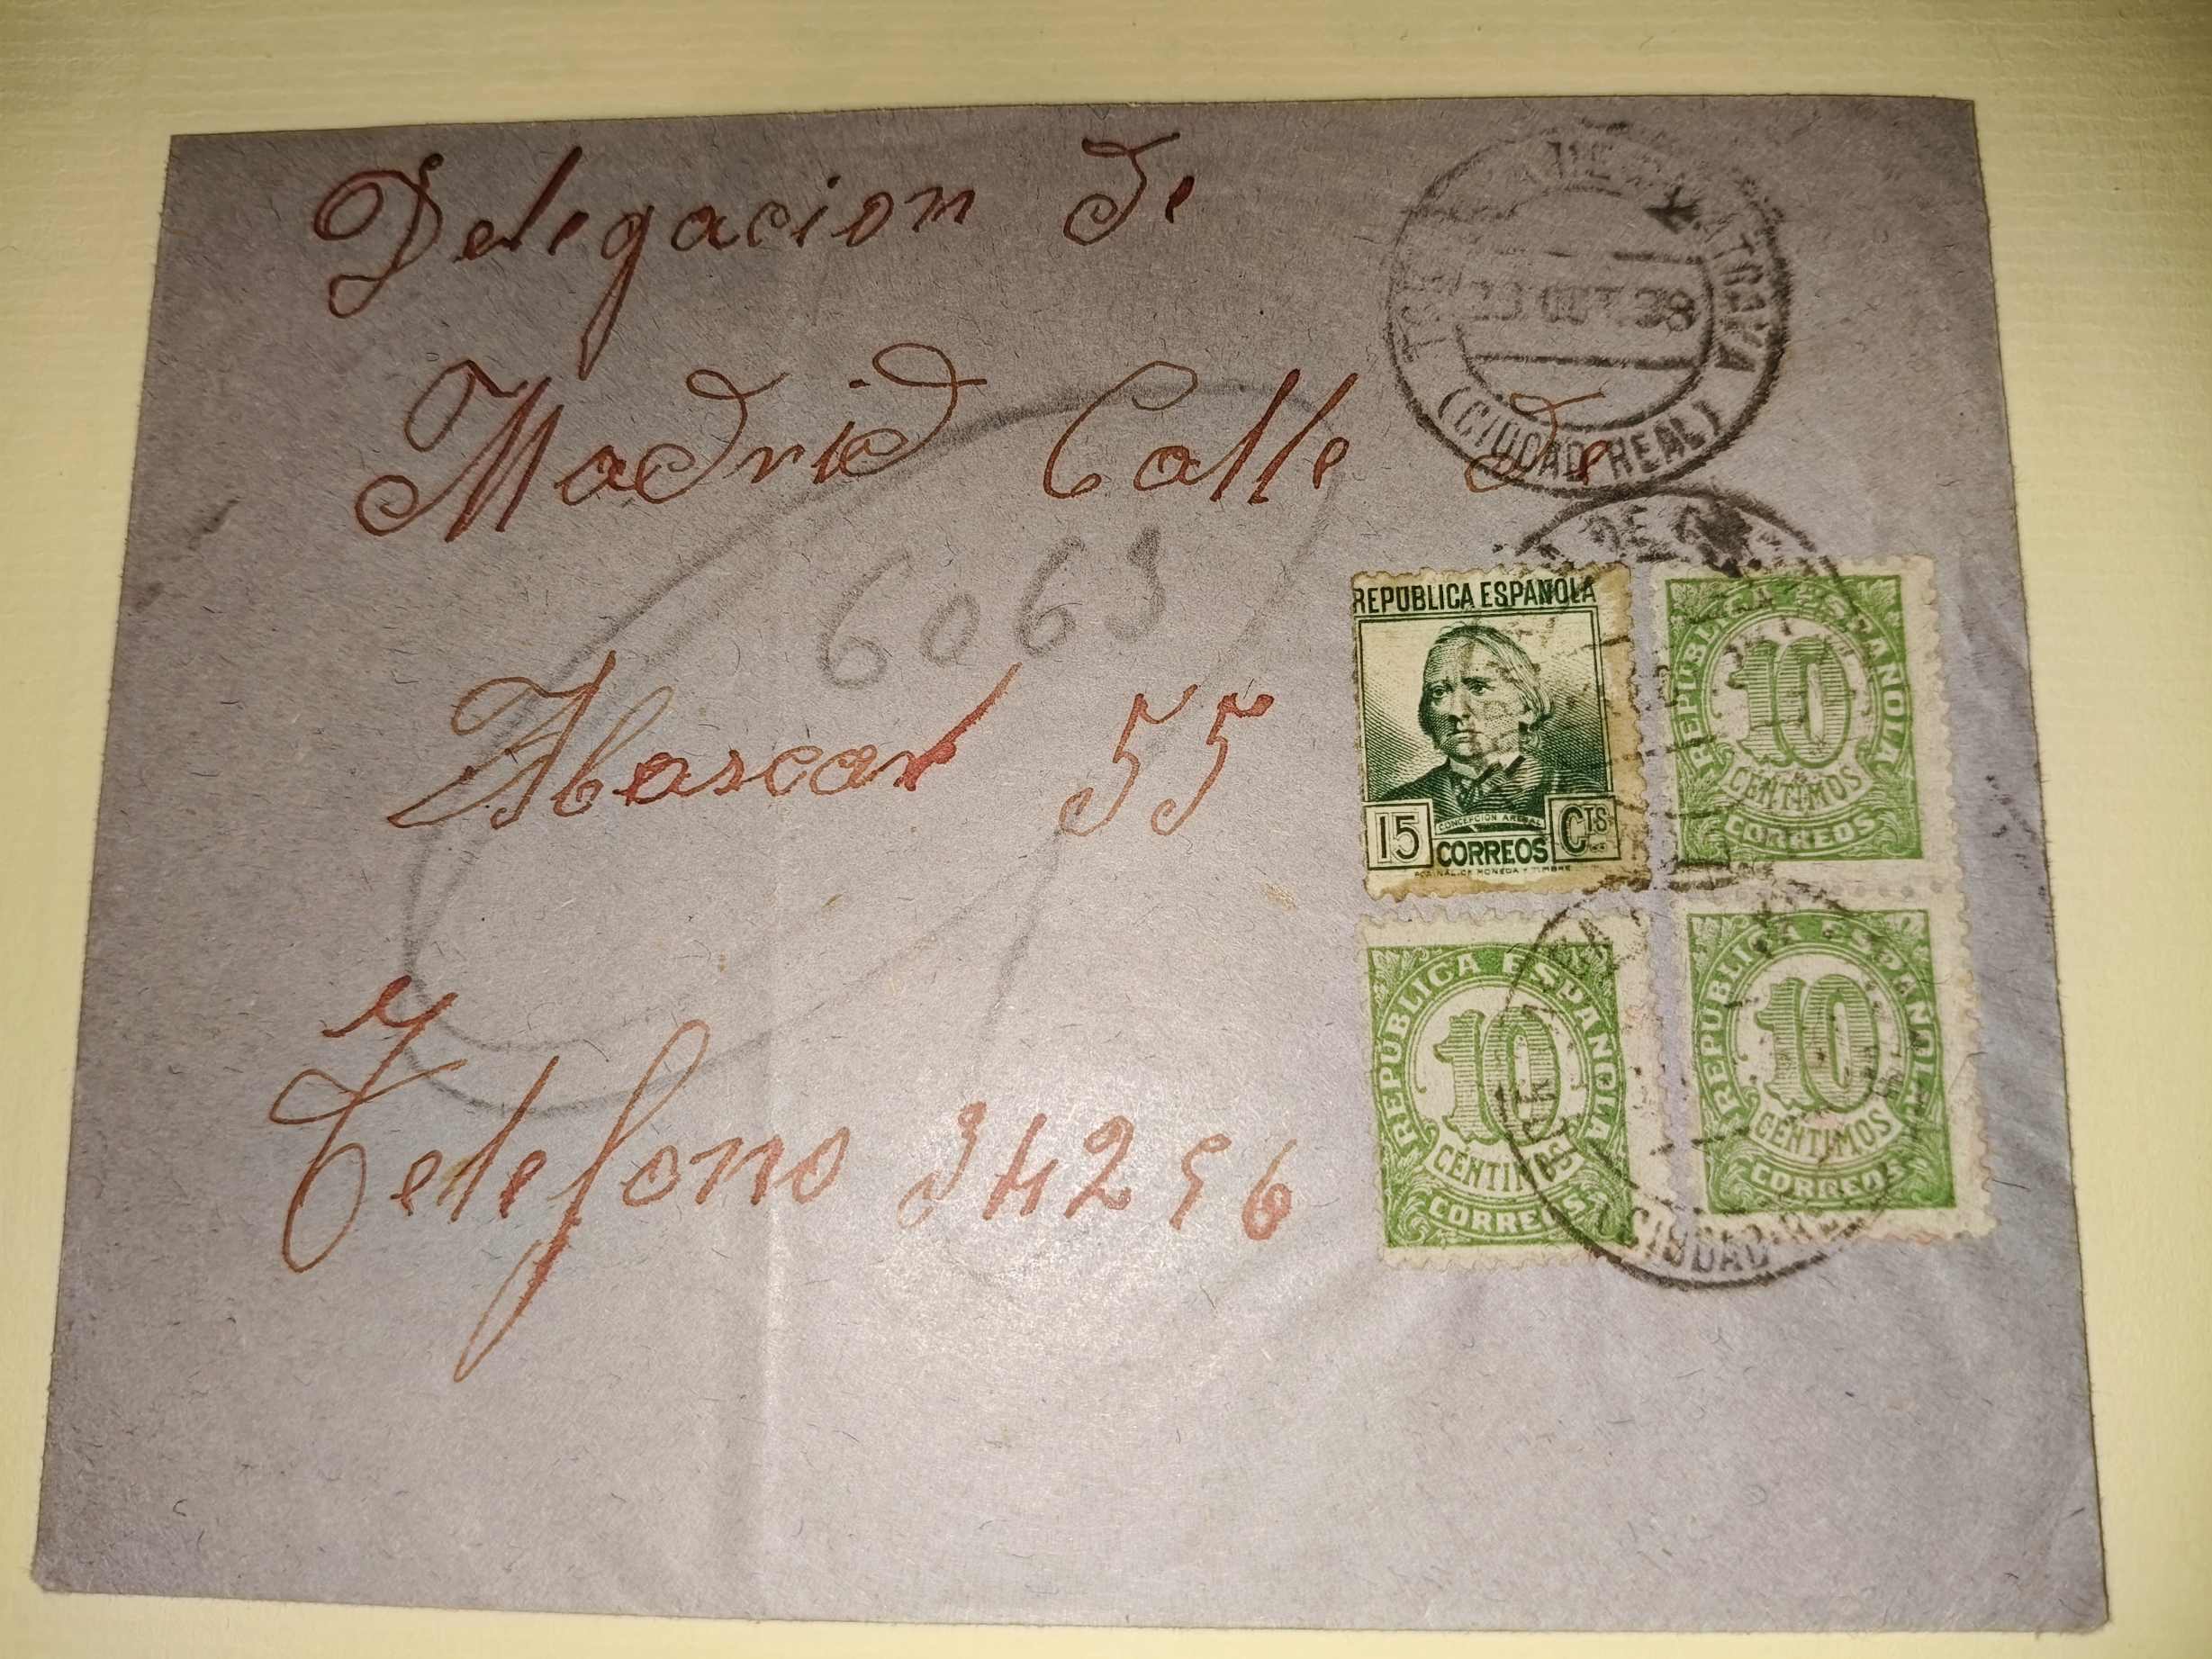 Delegacion de
Madrid Calle de
6063
Abascal 55
Telefono 34256
OCT. 38
(CIUDAD REAL)
REPUBLICA ESPAÑOLA
15 CTS
CONCEPCION ARENAL
CORREOS
REPUBLICA ESPAÑOLA
10
CENTIMOS
CORREOS
REPUBLICA ESPAÑOLA
10
CENTIMOS
CORREOS
REPUBLICA ESPAÑOLA
10
CENTIMOS
CORREOS